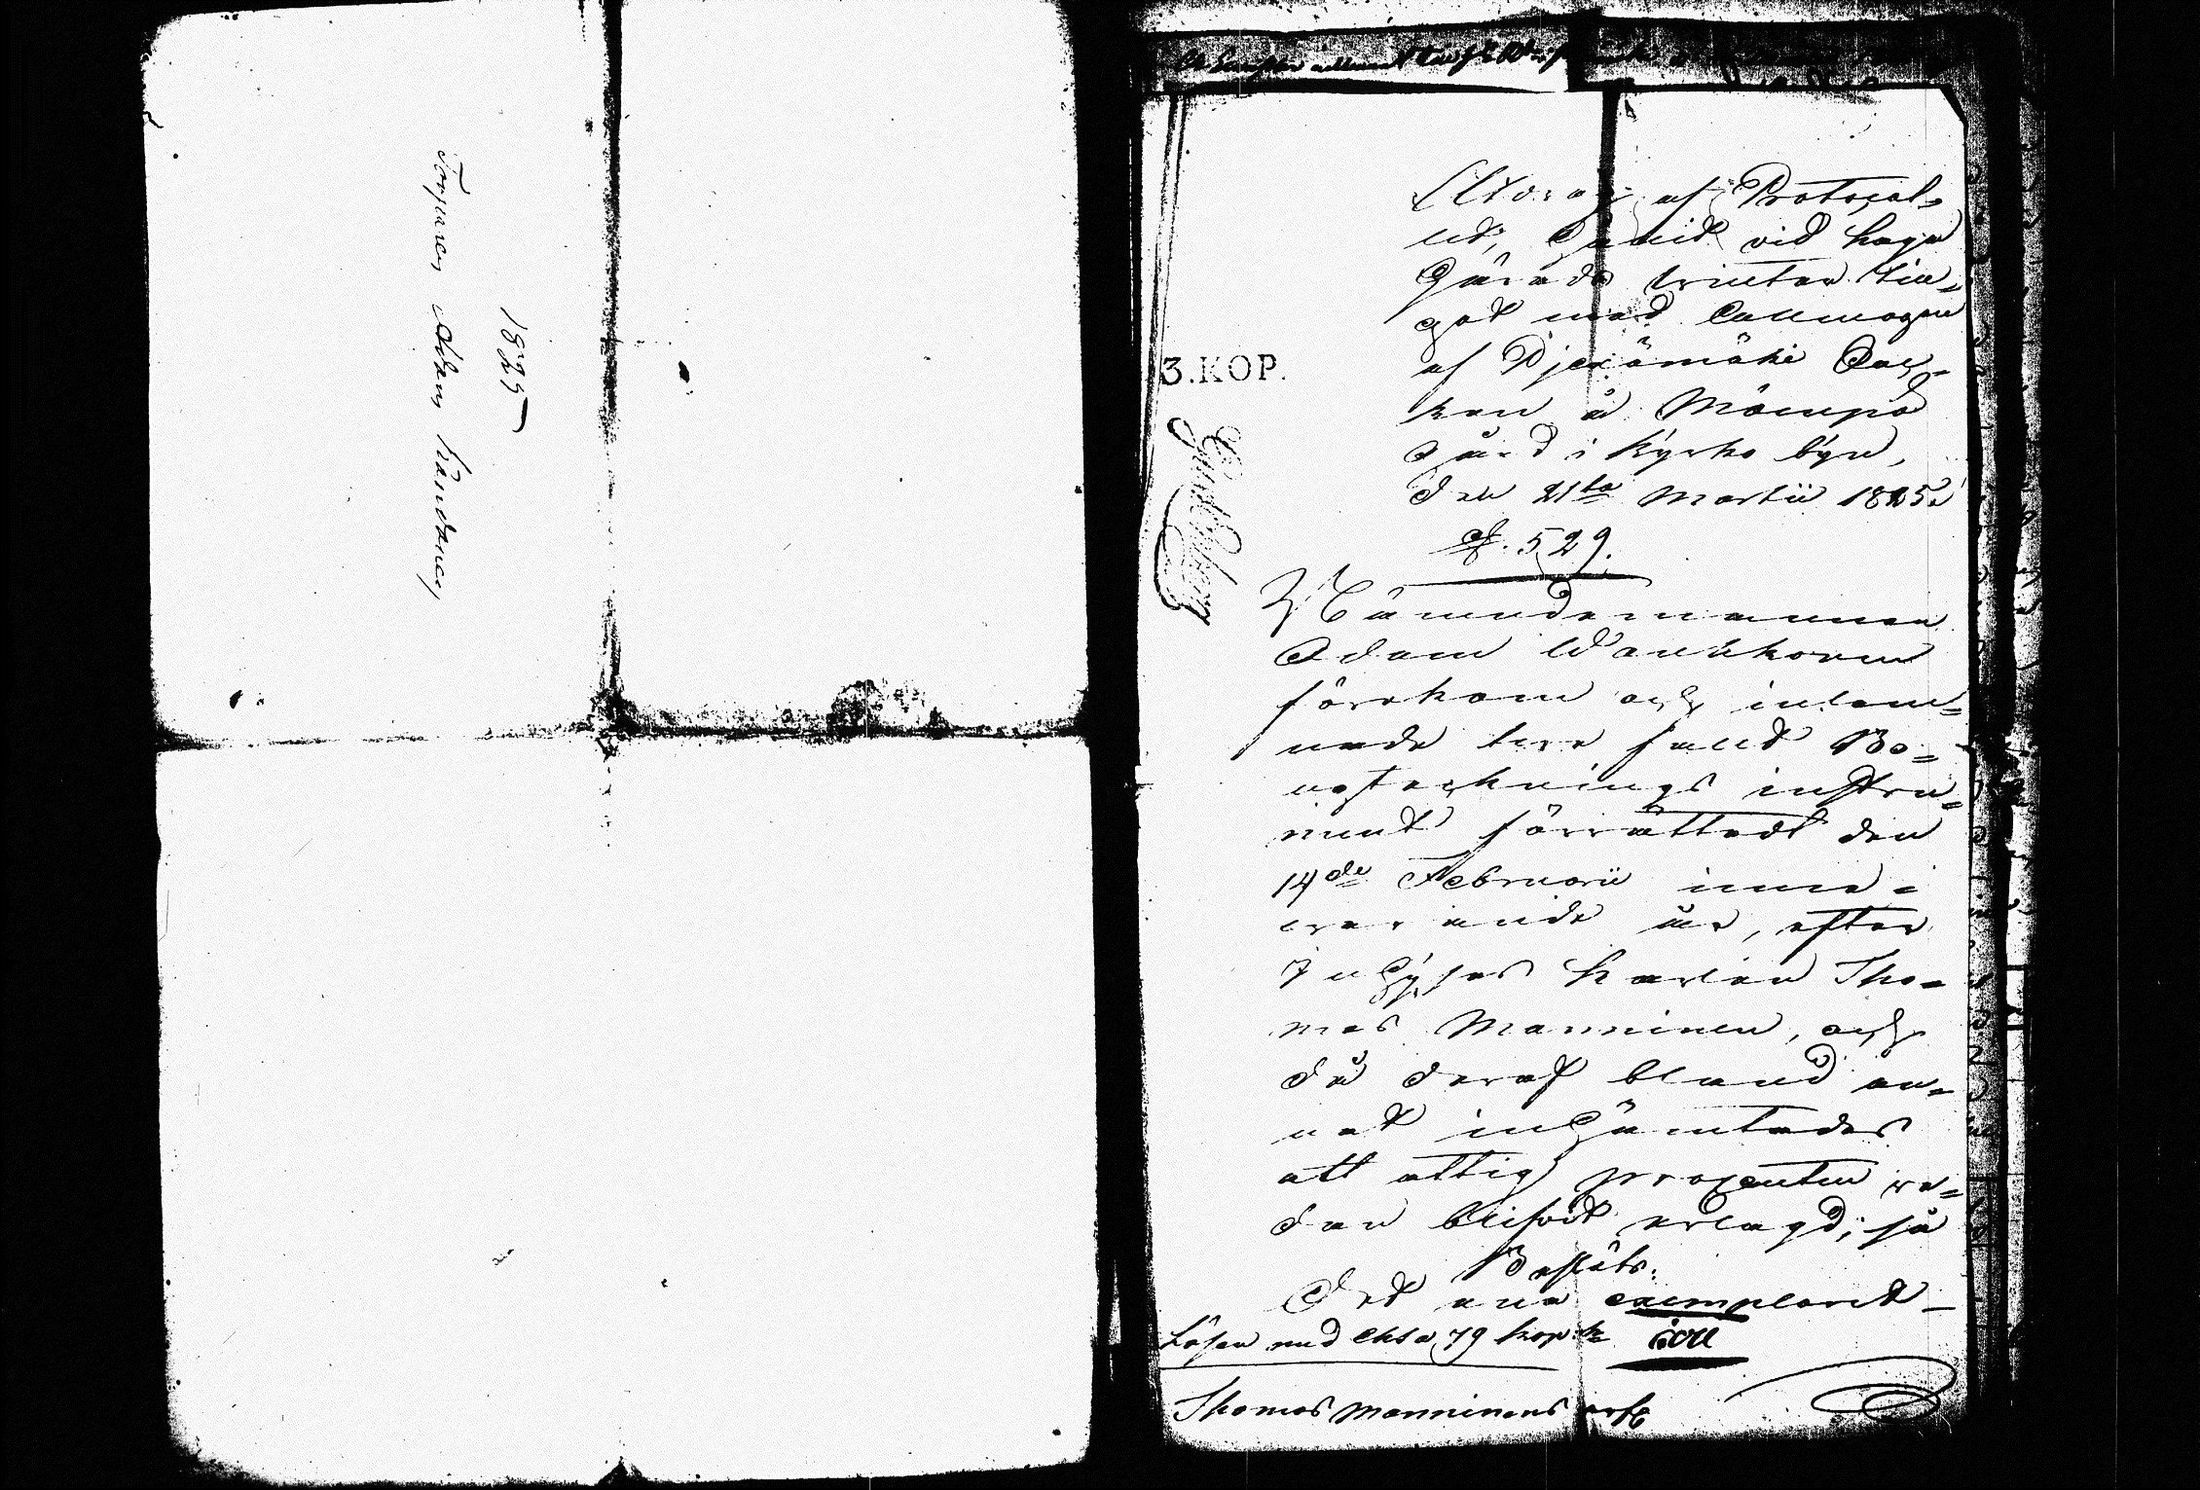 Torparen Adam Händanen
1825
3. KOP.
Utdrag af Protocol-
let, hållit vid laga
Härads wintertin-
get med Allmogen
af Pjexämäki Soc-
ken å Mäenpää
Gård i Kyrko byn,
den 21ta Martii 1825.
§. 529.
Nämndemannen
Adam Wanhonen
förekom och inlem-
nade tvefalld Bo-
uptecknings instru-
ment förrättadt den
14de Februarii inne-
varande år, efter
Inhyses Karlen Tho-
mas Manninen, och
då deraf bland an-
nat inhämtades
att attig procenten re-
dan blifvit erlagd; så
Beslöts:
Det ena exemplaret
Lösen med Ch:ta 79 kop:r
Thomas Manninens